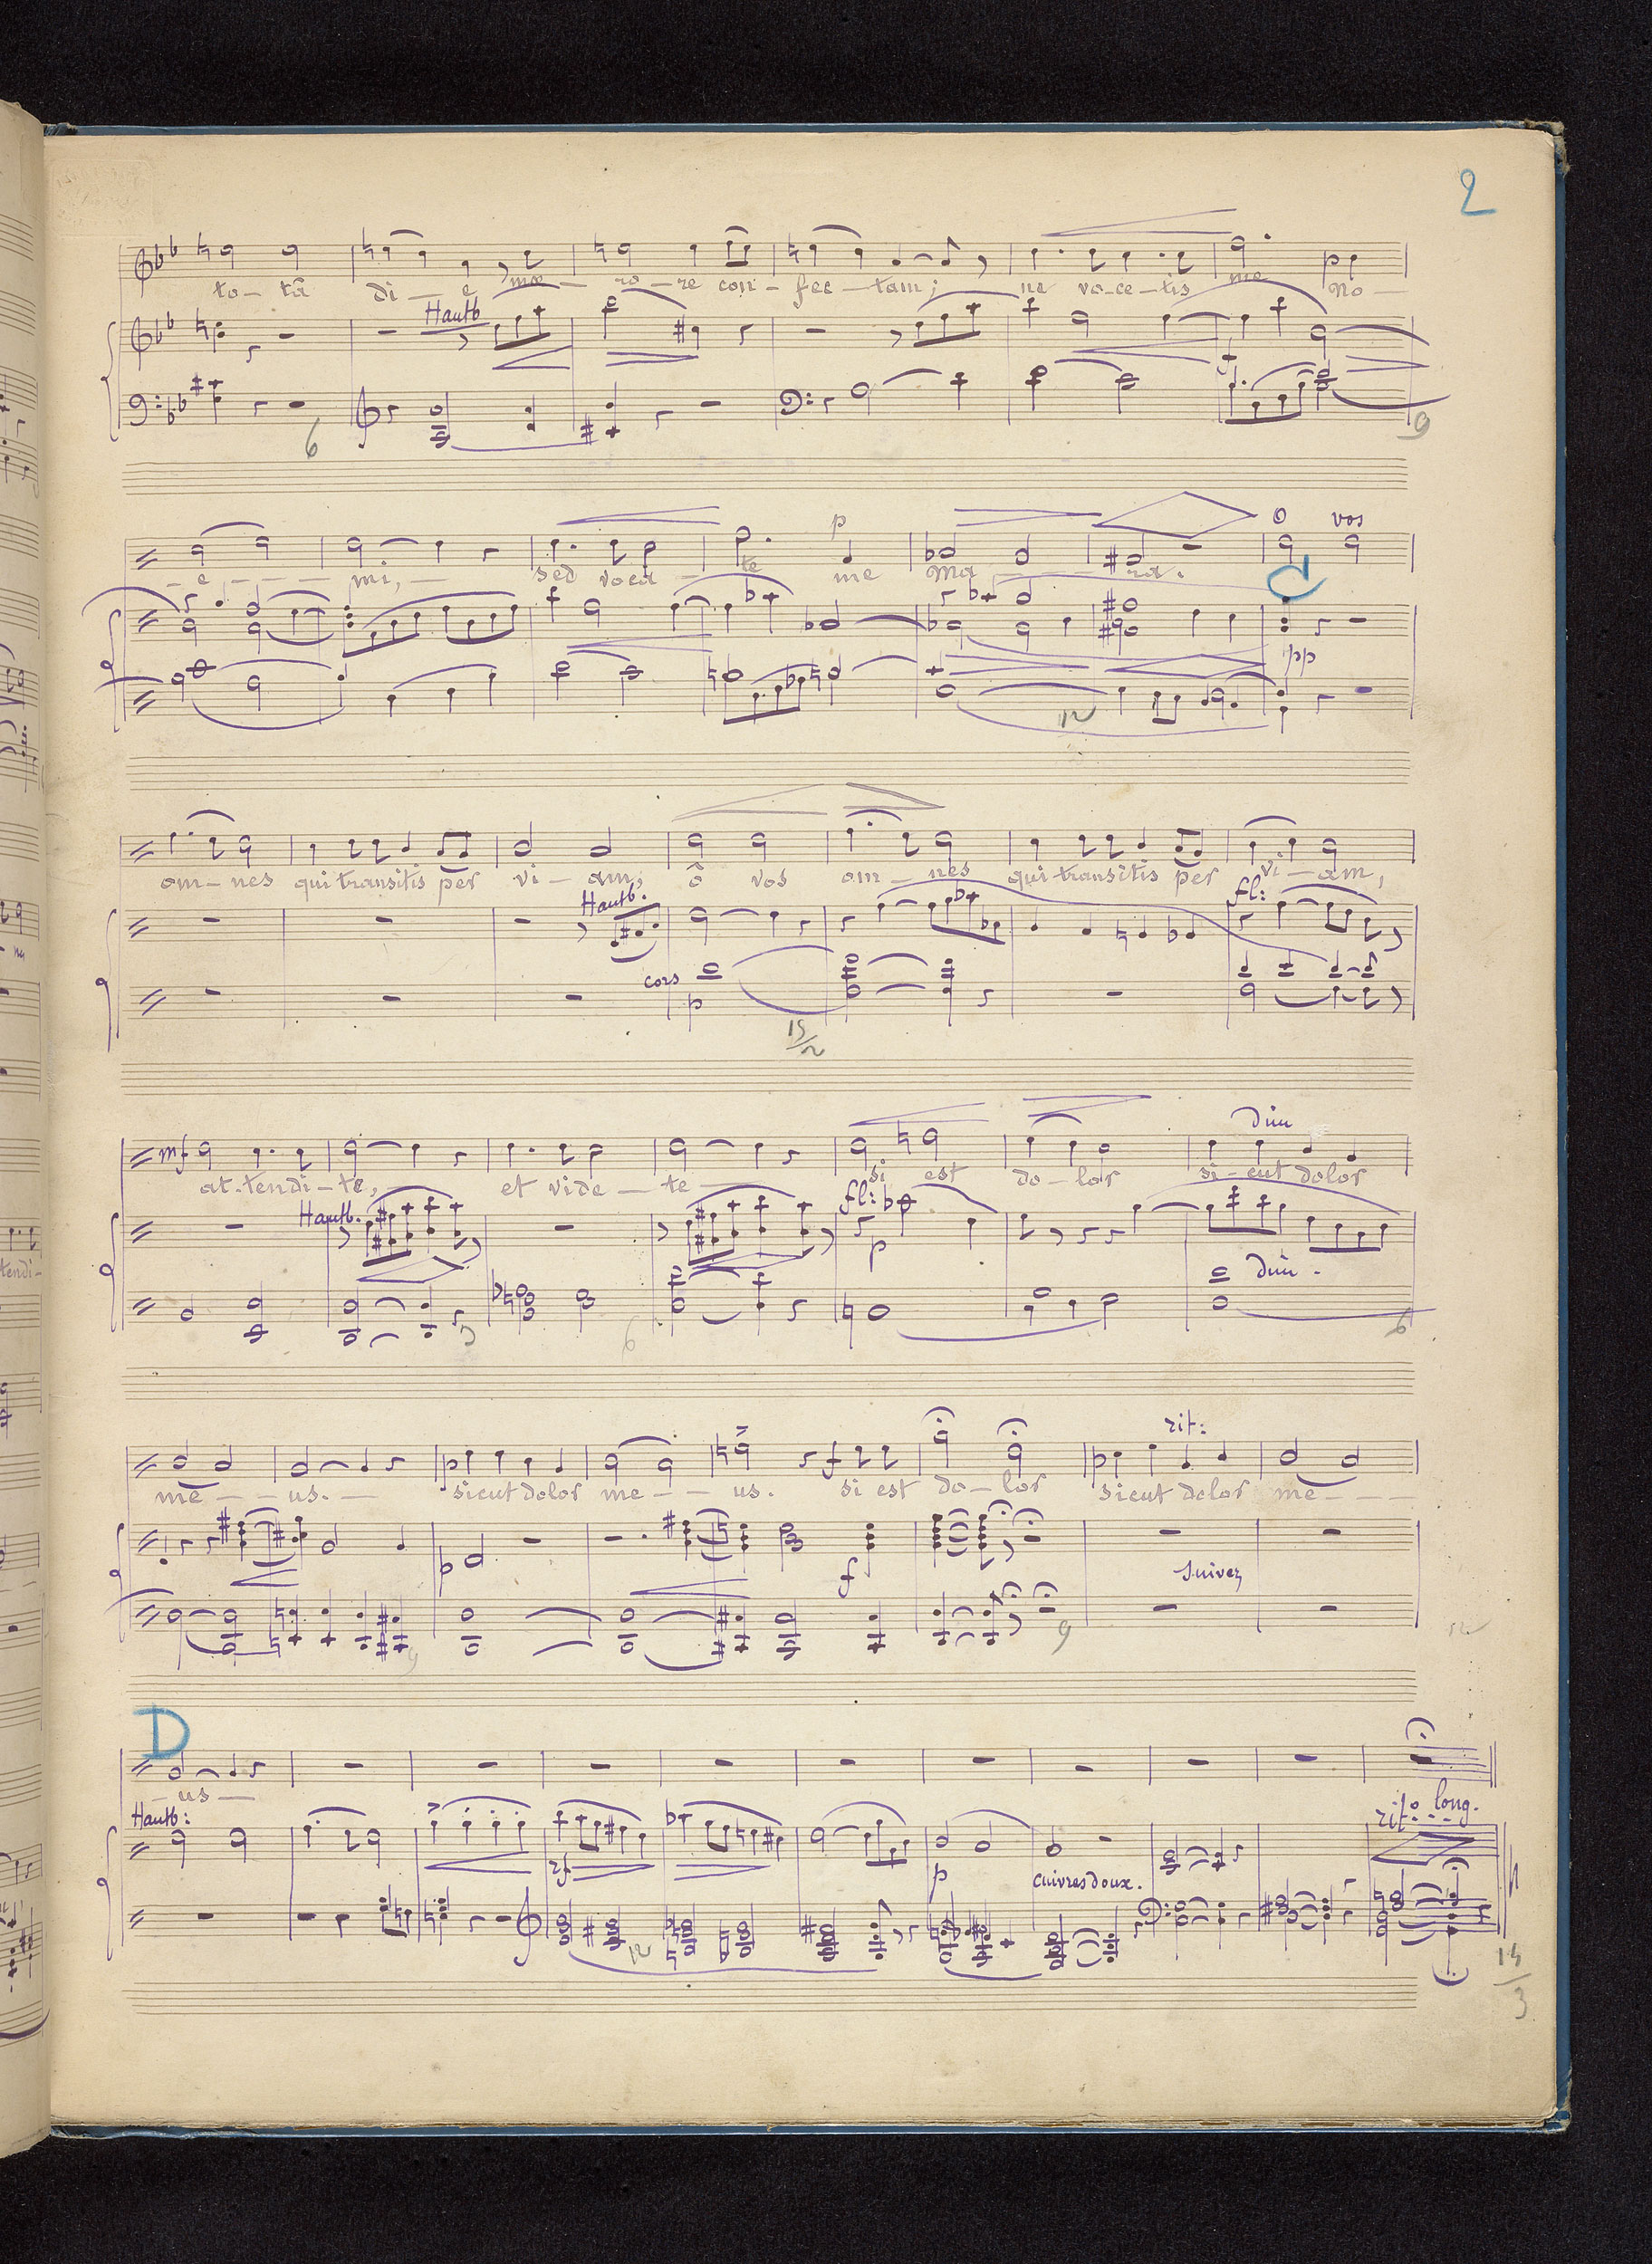 2
to - tâ di - e mæ - ro - re con - fec - tam; ne vo - ce - tis me p no -
Hautb
f
6
9
p o vos
- e - - - mi, - sed voca - te me Ma - - - ra.
C
pp
12
om - nes qui transitis per vi - am, ô vos om - nes qui transitis per vi - am,
Hautb. fl:
cors
p
15/2
dim
mf at - tendi - te, - et vide - te - si est do - lor si - cut dolor
Hautb. fl:
p
dim.
6
6
rit:
p f p
me - - us. - sicut dolor me - - us. si est do - lor sicut dolor me - -
f suivez
9
9
12
D
- us -
Hautb: rit. long.
rf p cuivres doux.
12
15/3